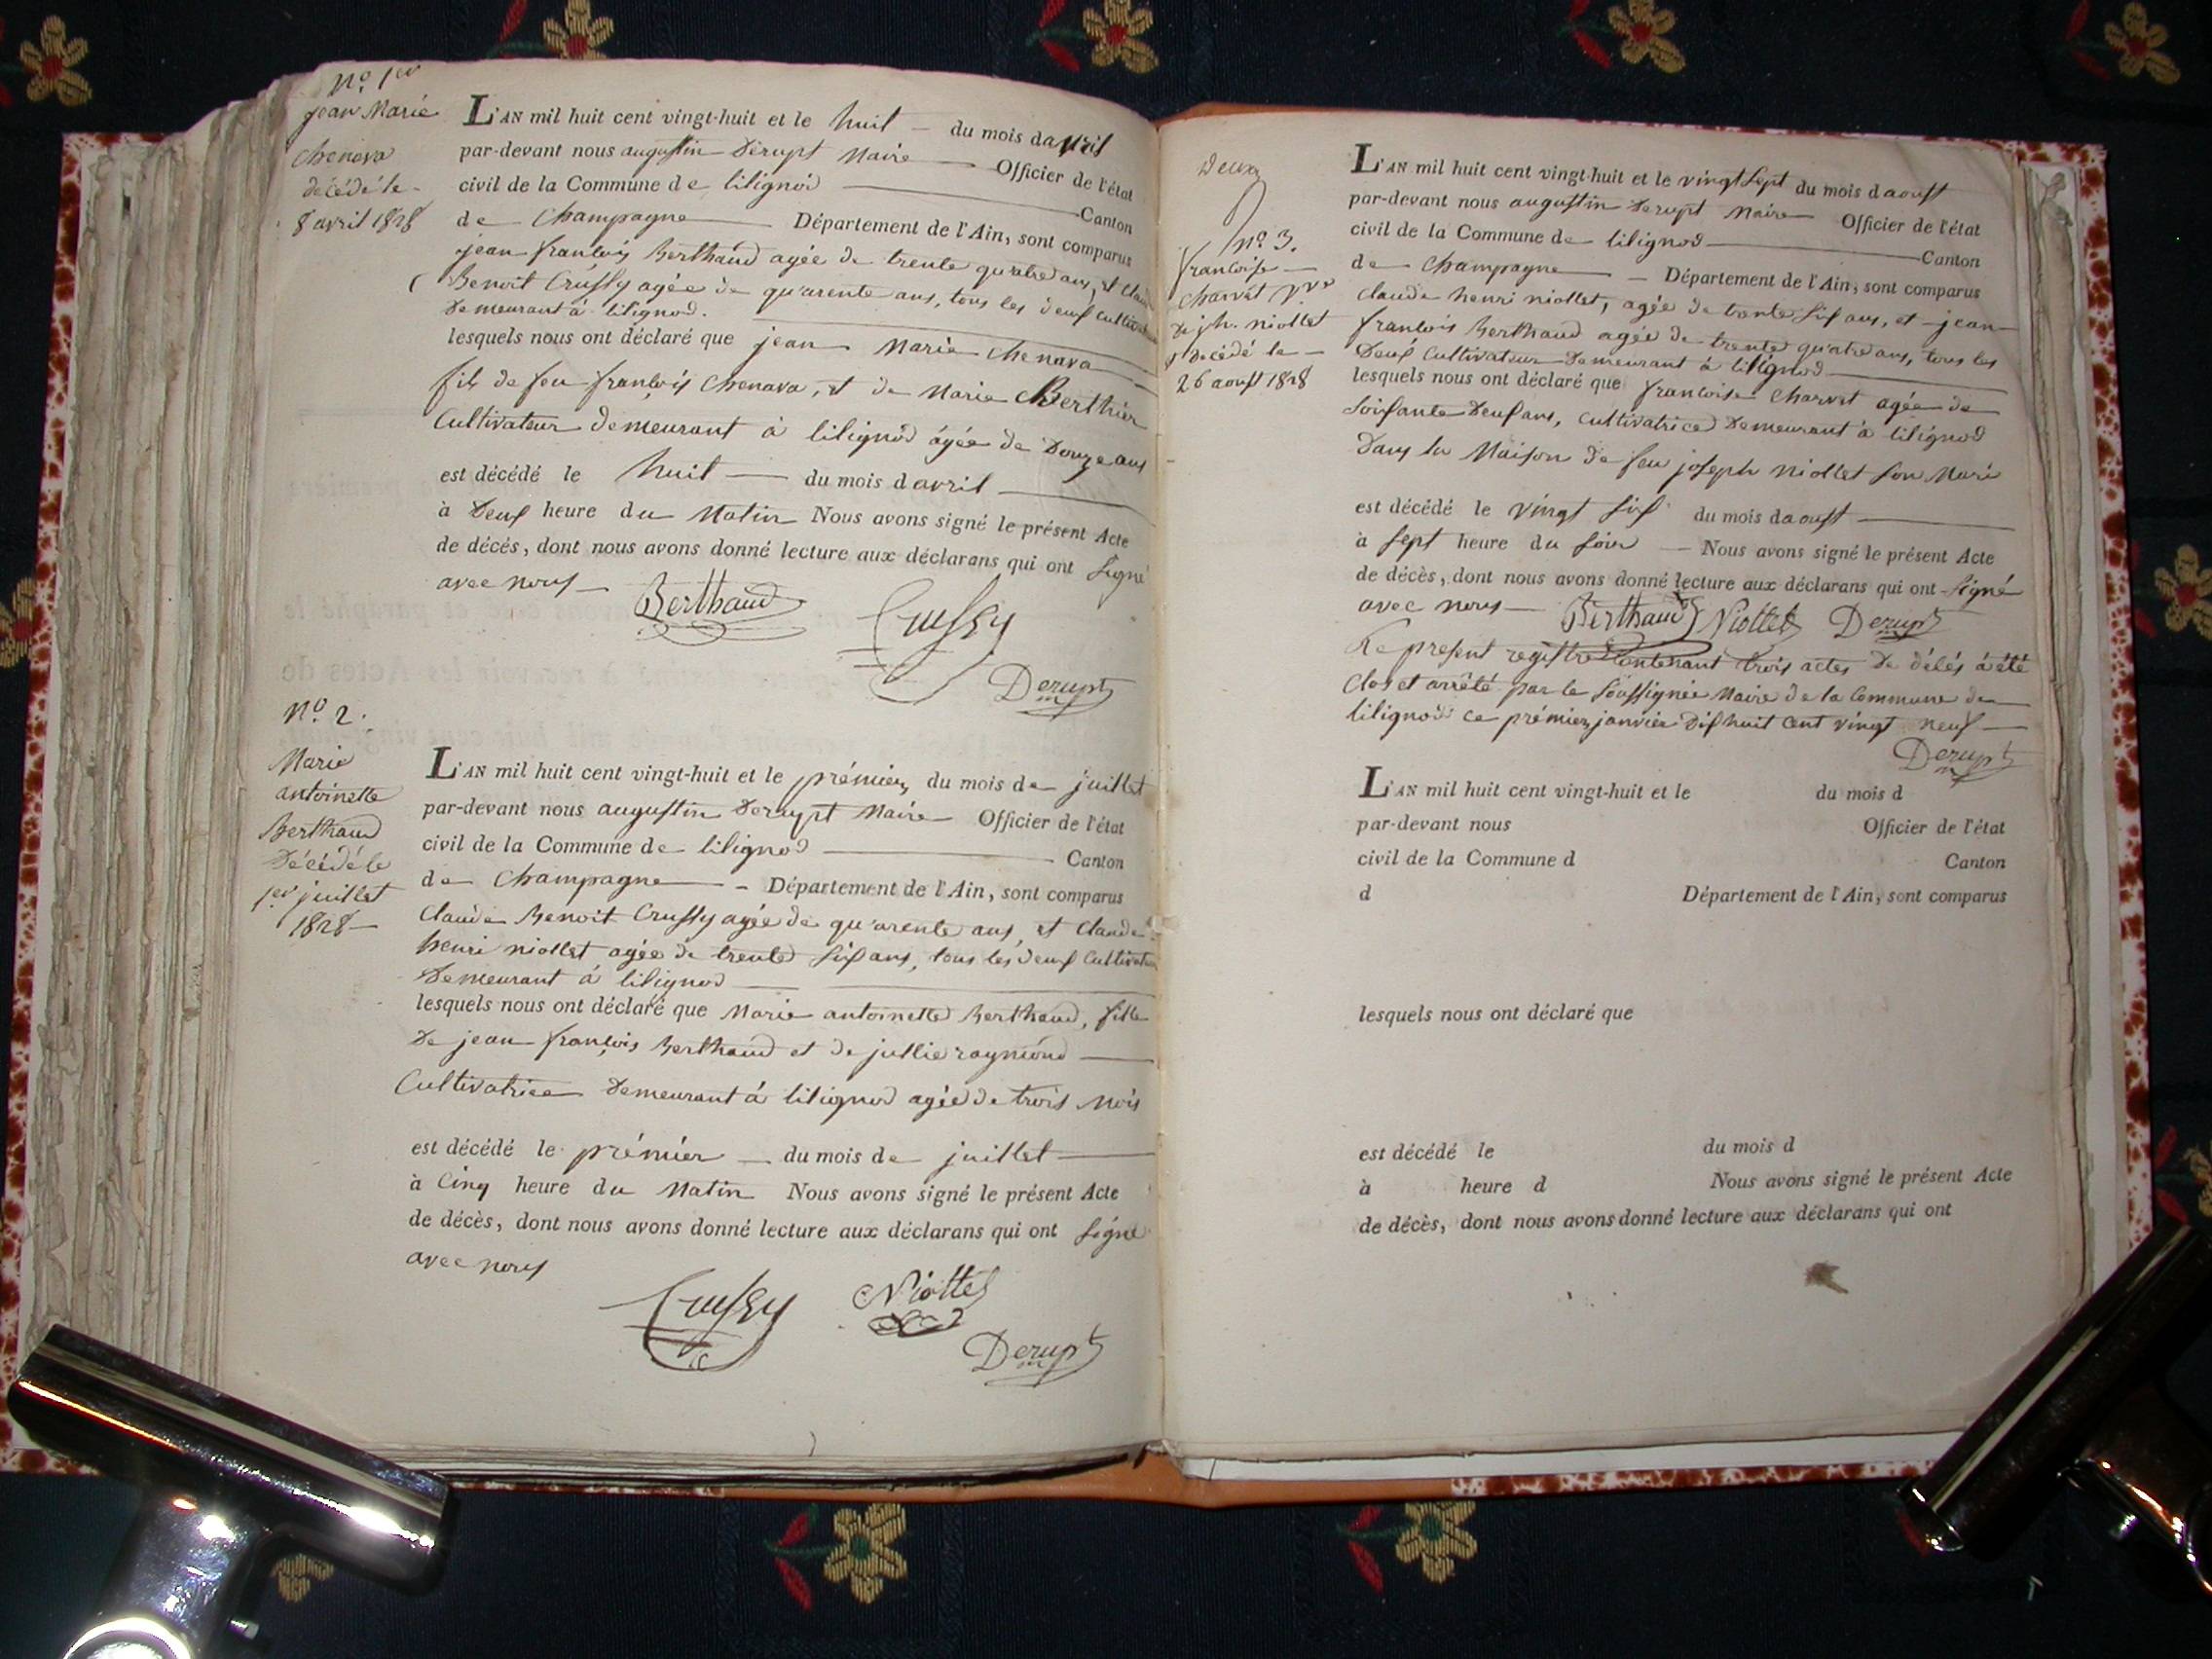 n.o 1er
jean Marie
chenava
décédé le
8 avril 1828
L'AN mil huit cent vingt-huit et le huit du mois davril
par-devant nous augustin Derupt Maire Officier de l'état
civil de la Commune de lilignod Canton
de Champagne Département de l'Ain, sont comparus
jean françois Berthaud agée de trente qu'atre ans, et claude
Benoit Crussy agée de qu'arente ans, tous les deux cultivateur
Demeurant à lilignod.
lesquels nous ont déclaré que jean Marie chenava
fils de feu françois chenava, et de Marie Berthier
Cultivateur demeurant à lilignod agée de Douze ans
est décédé le huit du mois d avril
à Deux heure du Matin Nous avons signé le présent Acte
de décés, dont nous avons donné lecture aux déclarans qui ont signé
avec nous
Berthaud
Crussy
Derupt
m
n.o 2.
Marie
antoinette
Berthaud
Décédé le
1er juillet
1828
L'AN mil huit cent vingt-huit et le prémier du mois de juillet
par-devant nous augustin Derupt Maire Officier de l'état
civil de la Commune de lilignod Canton
de Champagne Département de l'Ain, sont comparus
Claude Benoit Crussy agée de qu'arente ans, et Claude
henri niollet agée de trente six ans, tous les deux Cultivateur
Demeurant à lilignod
lesquels nous ont déclaré que Marie antoinette Berthaud, fille
De jean françois Berthaud et de jullie raymond
Cultivatrice Demeurant à lilignod agée de trois Mois
est décédé le prémier du mois de juillet
à Cinq heure du Matin Nous avons signé le présent Acte
de décès, dont nous avons donné lecture aux déclarans qui ont signé
avec nous
Crussy Niollet
Derupt
m
Deux
n.o 3.
francoise
charvet vve
De jh. niollet
décédé le
26 aoust 1828
L'AN mil huit cent vingt-huit et le vingt sept du mois d aoust
par-devant nous augustin Derupt Maire Officier de l'état
civil de la Commune de lilignod Canton
de Champagne Département de l'Ain, sont comparus
Claude henri niollet, agée de trente six ans, et jean
françois Berthaud agée de trente qu'atre ans, tous les
Deux Cultivateur Demeurant à lilignod
lesquels nous ont déclaré que francoise Charvet agée de
Soixante Deux ans, Cultivatrice Demeurant à lilignod
Dans la Maison de feu joseph niollet son Mari
est décédé le vingt six du mois daoust
à sept heure du soir Nous avons signé le présent Acte
de décès, dont nous avons donné lecture aux déclarans qui ont signé
avec nous Berthaud Niollet Derupt
Le present registre Contenant trois actes De décés à été
Clos et arrêté par le Soussignée Maire de la Commune de
lilignod ce prémier janvier Dix huit Cent vingt neuf
Derupt
m
L'AN mil huit cent vingt-huit et le du mois d
par-devant nous Officier de l'état
civil de la Commune d Canton
d Département de l'Ain, sont comparus
lesquels nous ont déclaré que
est décédé le du mois d
à heure d Nous avons signé le présent Acte
de décès, dont nous avons donné lecture aux déclarans qui ont